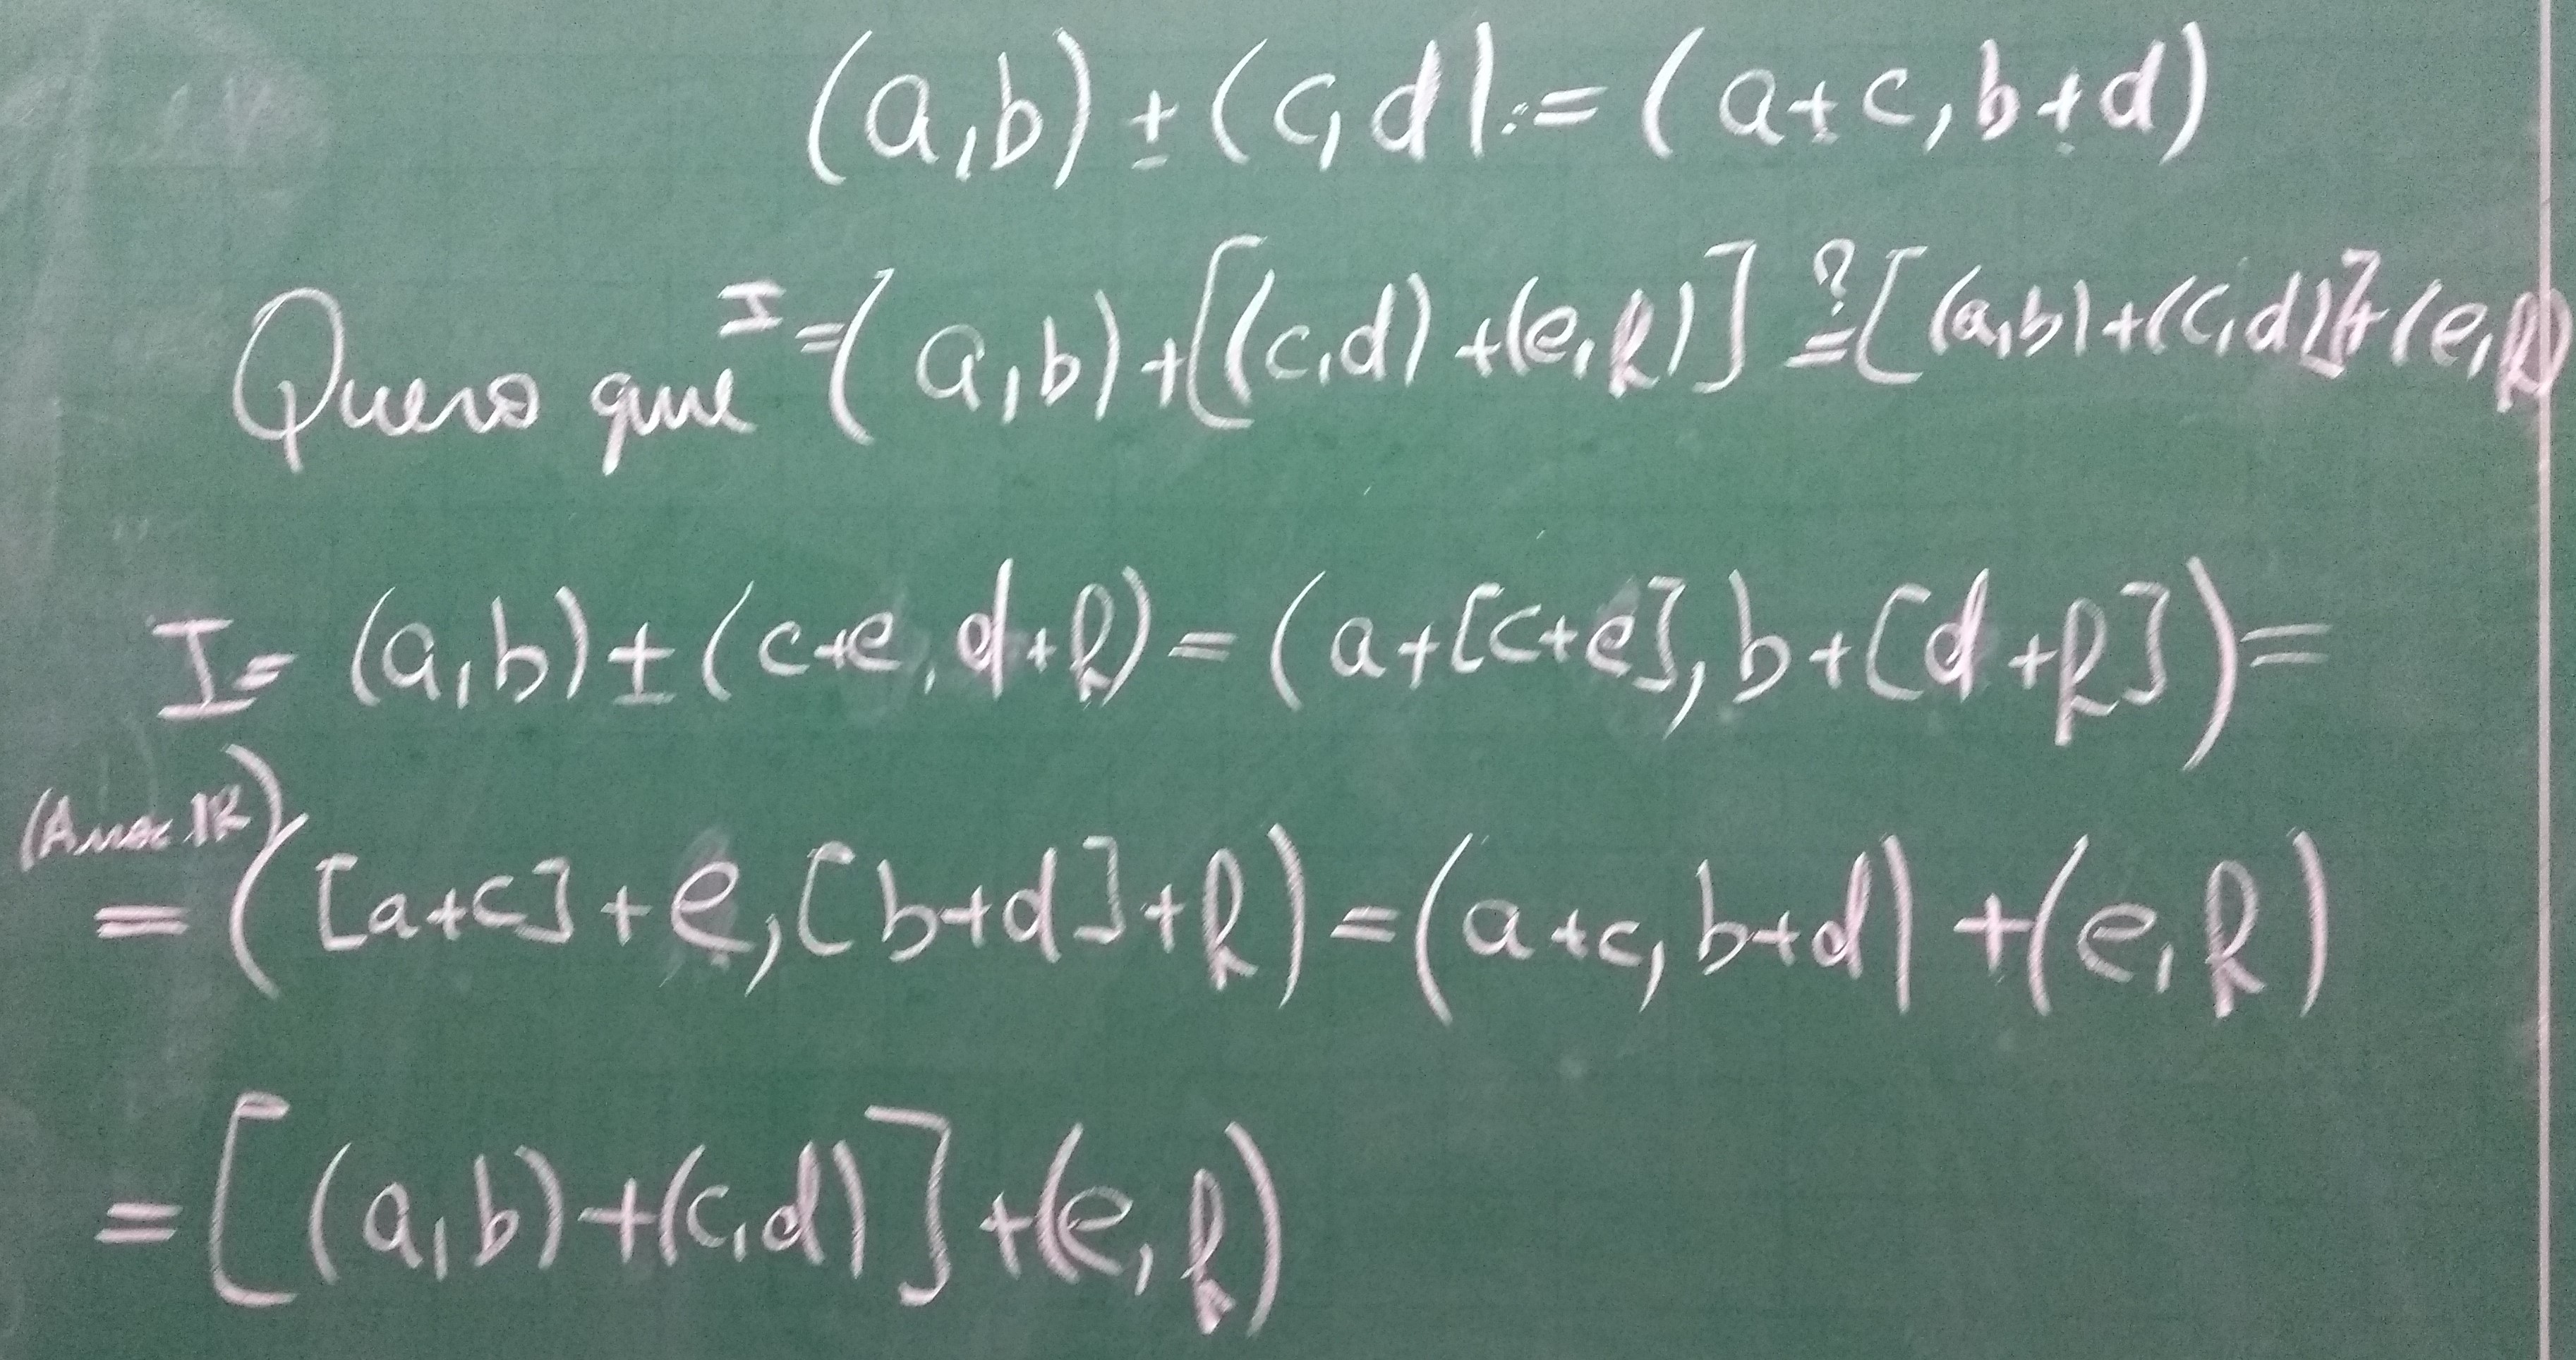 (a,b) + (c,d) := (a+c, b+d)
Quero que I = (a,b)+[(c,d)+(e,f)] ?= [(a,b)+(c,d)]+(e,f)
I = (a,b) + (c+e, d+f) = (a+[c+e], b+[d+f]) =
(Assoc. ℝ)
= ([a+c]+e, [b+d]+f) = (a+c, b+d) + (e,f)
= [(a,b)+(c,d)]+(e,f)